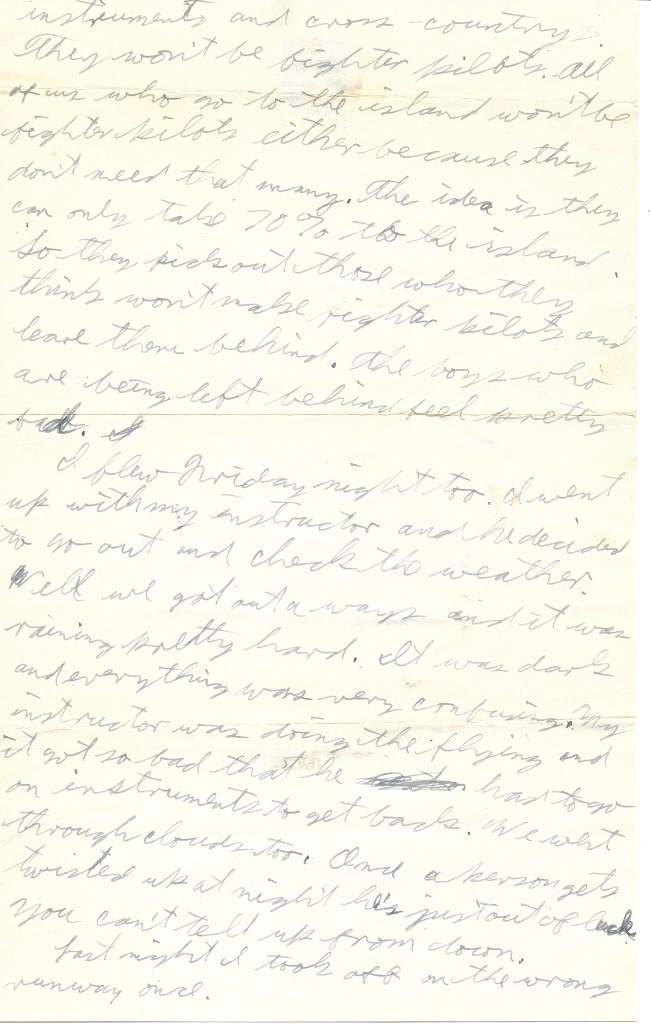 instruments and cross-countrys.
They won't be fighter pilots. All
of us who go to the island won't be
fighter pilots either because they
don't need that many. The idea is they
can only take 70% to the island.
So they pick out those who they
think won't make fighter pilots and
leave them behind. The boys who
are being left behind feel pretty
bad. I
I flew Friday night too. I went
up with my instructor and he decided
to go out and check the weather.
Well we got out a ways and it was
raining pretty hard. It was dark
and everything was very confusing. My
instructor was doing the flying and
it got so bad that he had to go
on instruments to get back. We went
through clouds too. Once a person gets
twisted up at night he's just out of luck
You can't tell up from down.
Last night I took off on the wrong
runway once.